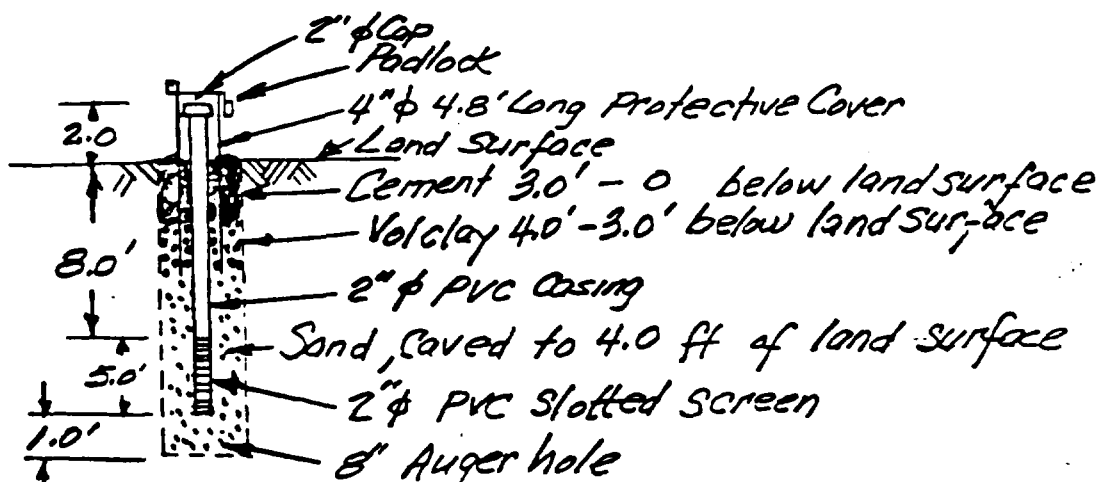 2" ϕ Cap
Padlock
4" ϕ 4.8' Long Protective Cover
2.0
Land Surface
Cement 3.0' - 0 below land surface
Volclay 4.0' - 3.0' below land surface
8.0'
2" ϕ PVC Casing
Sand, Caved to 4.0 ft of land surface
5.0'
2" ϕ PVC Slotted Screen
1.0'
8" Auger hole